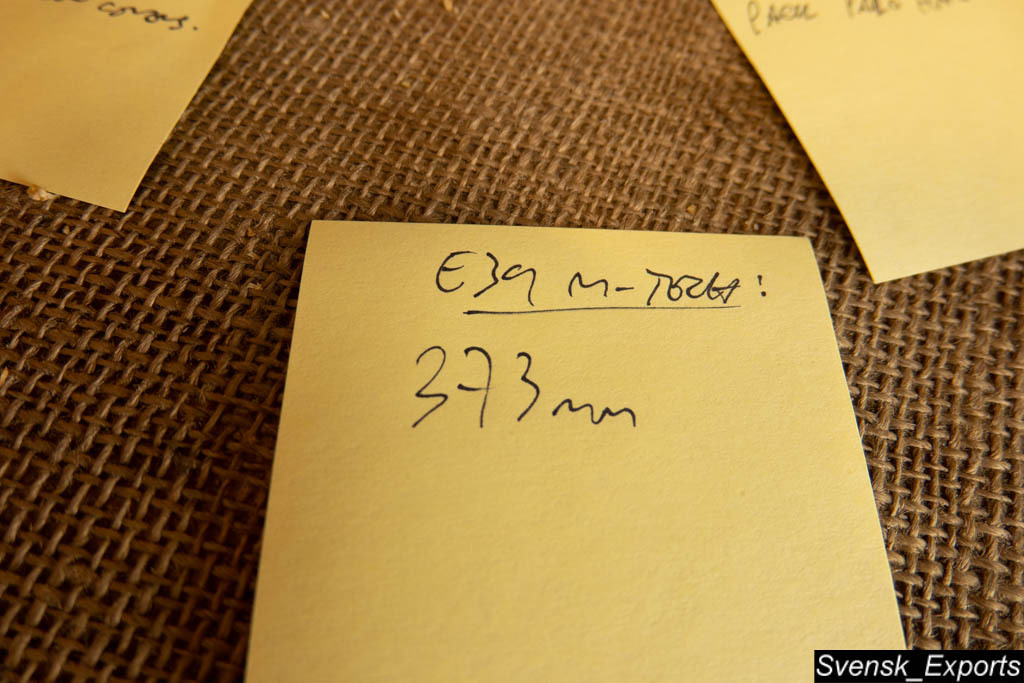 covers.
PACK
E39 M-TECH:
373mm
Svensk_Exports